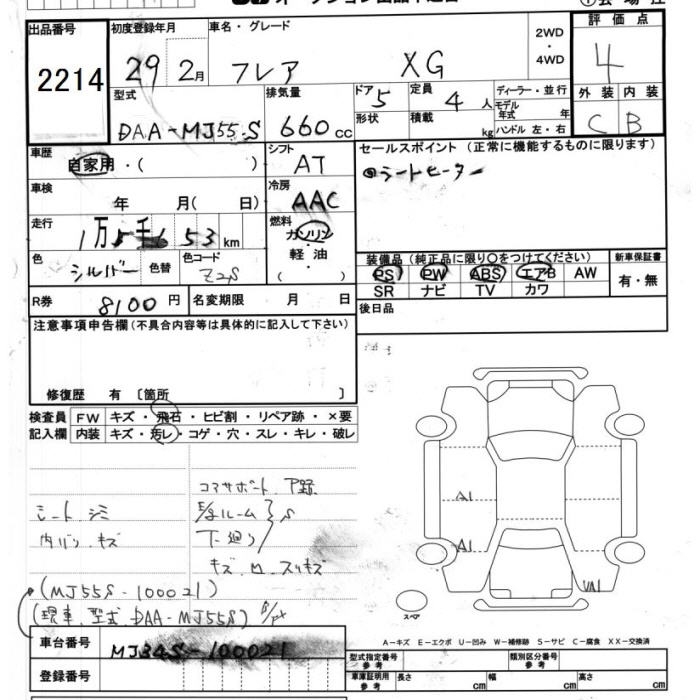 出品番号
2214
初度登録年月
29 2月
車名・グレード
フレア XG
2WD
・
4WD
評価点
4
外装 内装
C B
型式
DAA-MJ55S
排気量
660cc
ドア 5
形状
定員 4人
積載 kg
ディーラー・並行
モデル年式 年
ハンドル 左・右
車歴
自家用・( )
シフト
AT
セールスポイント (正常に機能するものに限ります)
◎シートヒーター
車検
年 月( 日)
冷房
AAC
走行
1万5千653km
燃料
ガソリン
軽油
色
シルバー
色替
色コード
Z2S
装備品 (純正品に限り○をつけてください)
PS PW ABS エアB AW
SR ナビ TV カワ
新車保証書
有・無
R券
8100円
名変期限 月 日
後日品
注意事項申告欄(不具合内容等は具体的に記入して下さい)
修復歴 有 〔箇所 〕
検査員
記入欄
FW キズ・飛石・ヒビ割・リペア跡・×要
内装 キズ・汚レ・コゲ・穴・スレ・キレ・破レ
シート シミ
内バリ キズ
コアサポート 下録
ルーム
S
下廻り
キズ
(MJ55S-100021)
(現車 型式 DAA-MJ55S)
車台番号
MJ34S-100021
登録番号
A1
A1
VA1
スペア
A-キズ E-エクボ U-凹み W-補修跡 S-サビ C-腐食 XX-交換済
型式指定番号
参考
類別区分番号
参考
車庫証明用
参考
長さ cm
幅 cm
高さ cm